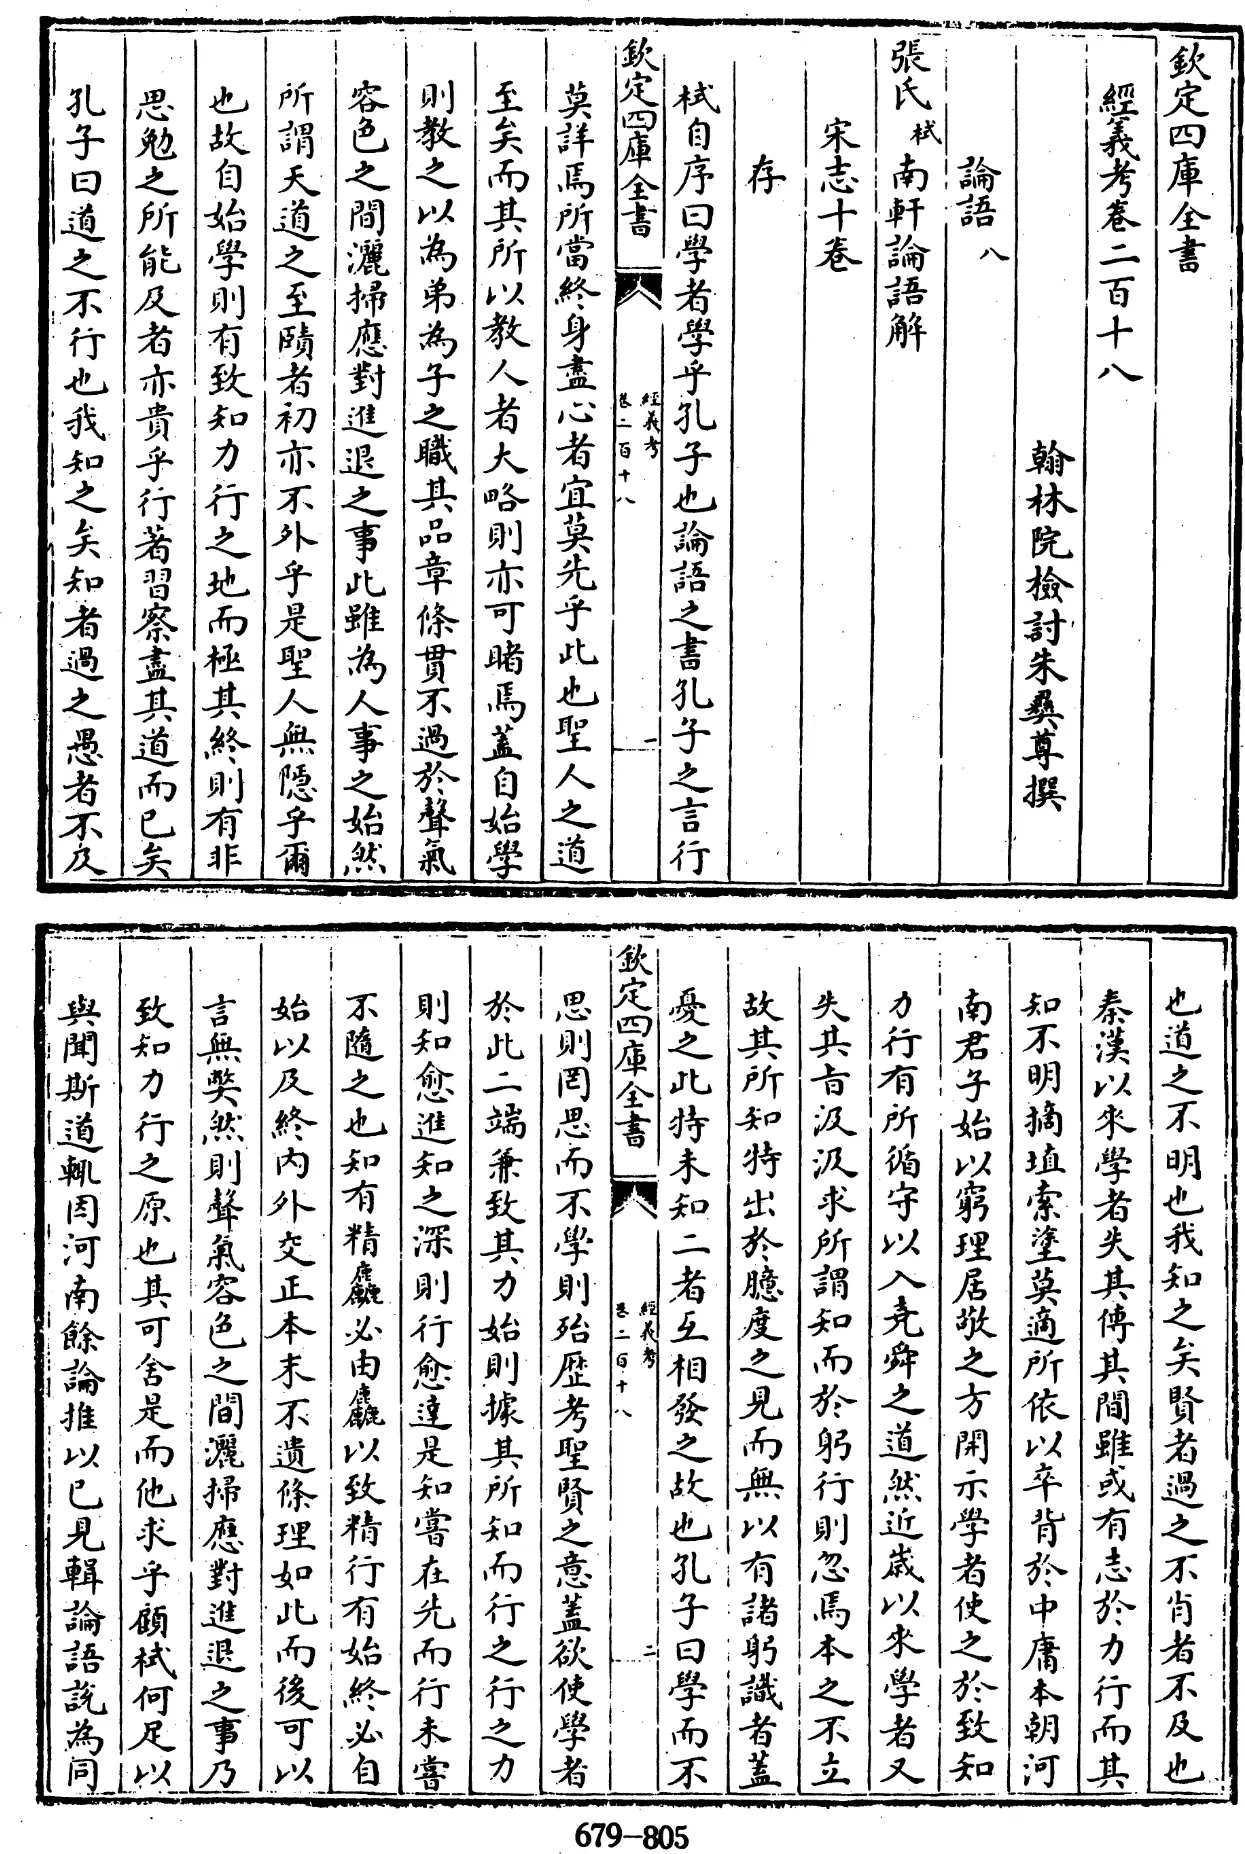 欽定四庫全書
經義考卷二百十八
翰林院檢討朱彝尊撰
論語八
張氏栻南軒論語解
宋志十卷
存
栻自序曰學者學乎孔子也論語之書孔子之言行
欽定四庫全書
經義考
卷二百十八
一
莫詳焉所當終身盡心者宜莫先乎此也聖人之道
至矣而其所以教人者大略則亦可睹焉蓋自始學
則教之以為弟為子之職其品章條貫不過於聲氣
容色之間灑掃應對進退之事此雖為人事之始然
所謂天道之至賾者初亦不外乎是聖人無隱乎爾
也故自始學則有致知力行之地而極其終則有非
思勉之所能及者亦貴乎行著習察盡其道而已矣
孔子曰道之不行也我知之矣知者過之愚者不及
也道之不明也我知之矣賢者過之不肖者不及也
秦漢以來學者失其傳其間雖或有志於力行而其
知不明擿埴索塗莫適所依以卒背於中庸本朝河
南君子始以窮理居敬之方開示學者使之於致知
力行有所循守以入堯舜之道然近歲以來學者又
失其旨汲汲求所謂知而於躬行則忽焉本之不立
故其所知特出於臆度之見而無以有諸躬識者蓋
憂之此特未知二者互相發之故也孔子曰學而不
欽定四庫全書
經義考
卷二百十八
二
思則罔思而不學則殆歷考聖賢之意蓋欲使學者
於此二端兼致其力始則據其所知而行之行之力
則知愈進知之深則行愈達是知嘗在先而行未嘗
不隨之也知有精麤必由麤以致精行有始終必自
始以及終內外交正本末不遺條理如此而後可以
言無獘然則聲氣容色之間灑掃應對進退之事乃
致知力行之原也其可舍是而他求乎顧栻何足以
與聞斯道輒因河南餘論推以己見輯論語說為同
679-805